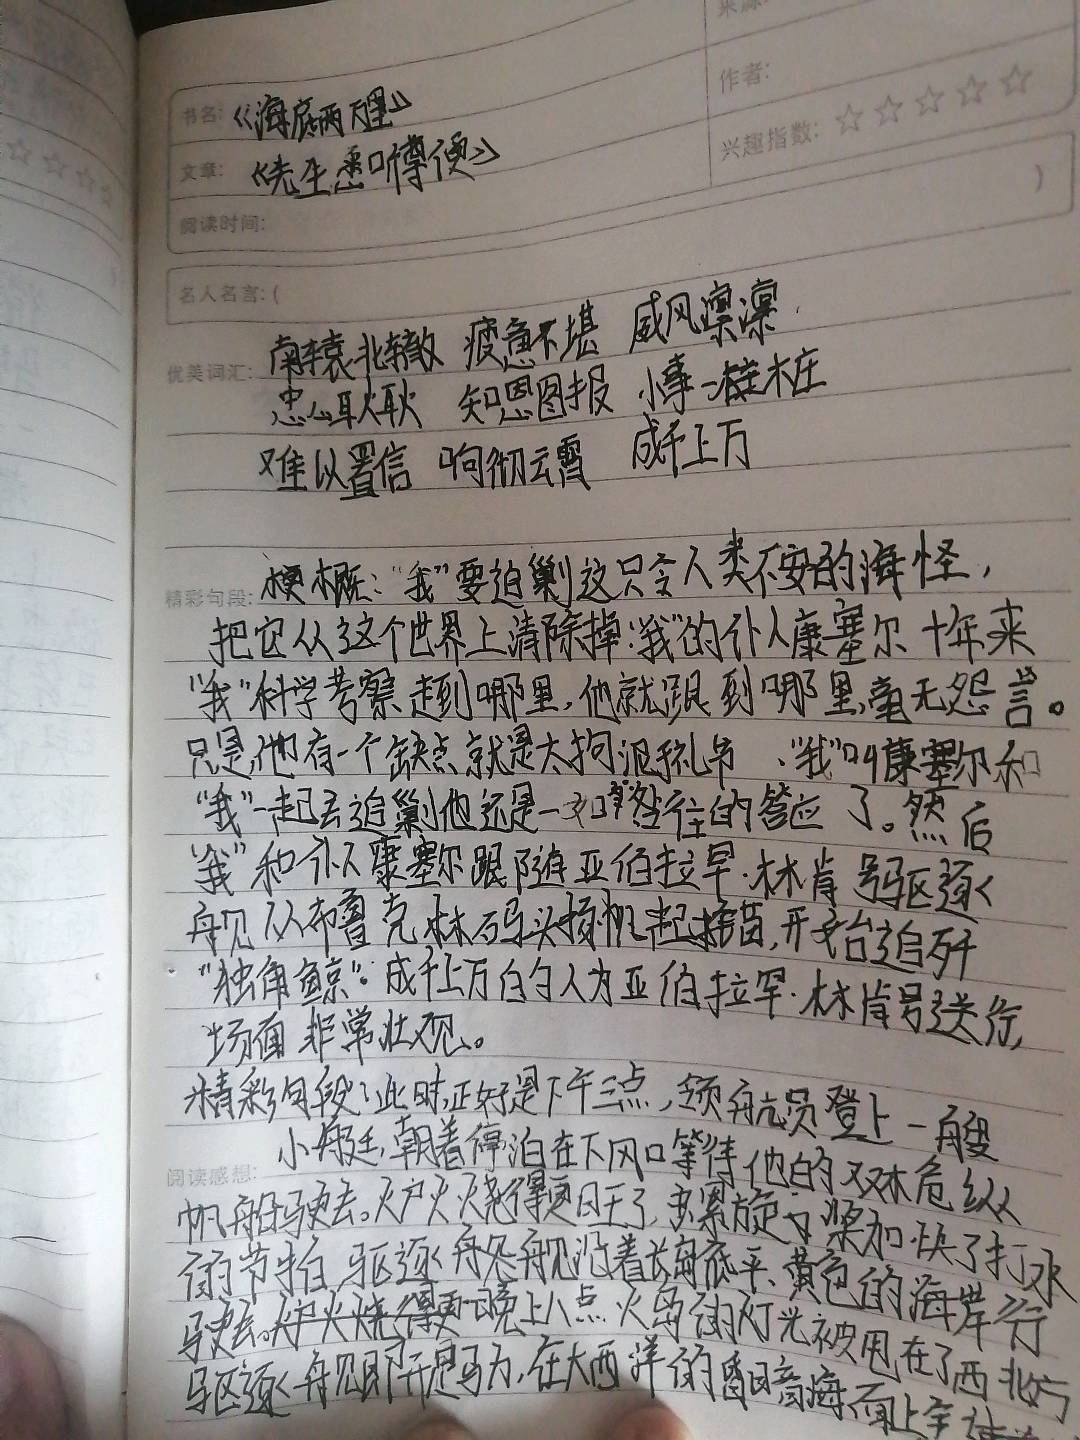 来源:
书名:《海底两万里》
作者:
文章:《先生悉听尊便》
兴趣指数:
阅读时间: )
名人名言:(
优美词汇: 南辕北辙 疲惫不堪 威风凛凛
忠心耿耿 知恩图报 小事一桩
难以置信 响彻云霄 成千上万
精彩句段: 梗概:“我”要追剿这只令人类不安的海怪,
把它从这个世界上清除掉.“我”的仆人康塞尔十年来
“我”科学考察走到哪里,他就跟到哪里,毫无怨言。
只是,他有一个缺点就是太拘泥礼节.“我”叫康塞尔和
“我”一起去追剿他还是一如往的答应了。然后
“我”和仆人康塞尔跟随亚伯拉罕·林肯号驱逐
舰从布鲁克林码头扬帆起锚,开始追歼
“独角鲸”。成千上万的人为亚伯拉罕·林肯号送行,
场面非常壮观。
精彩句段:此时,正好是下午三点,领航员登上一艘
阅读感想: 小艇,朝着停泊在下风口等待他的双桅纵
帆船驶去。炉火烧得更旺了,螺旋桨加快了打水
的节拍 驱逐舰沿着长岛低平、黄色的海岸行
驶去。晚上八点 火岛的灯光被甩在了西北方
驱逐舰开足马力,在大西洋的昏暗海面上